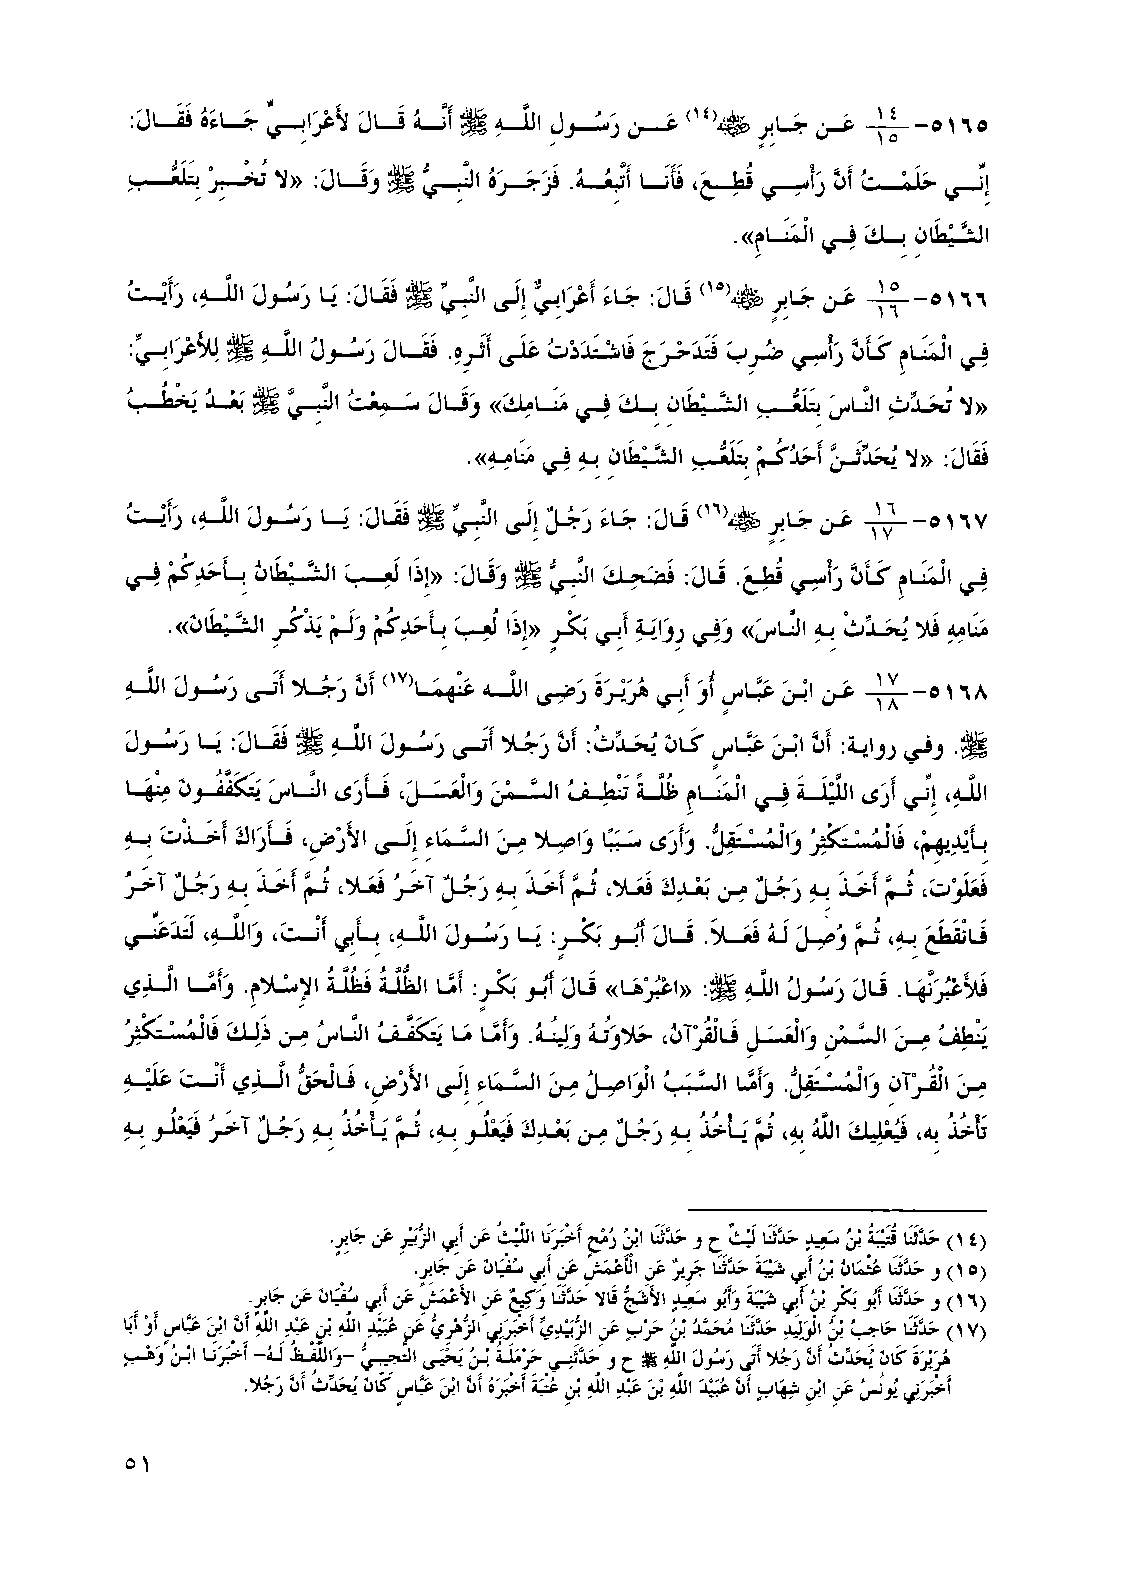 ٥١٦٥- ١٤/١٥ عَـن جَـابِرٍ ﷺ(١٤) عَـــن رَسُـول اللَّـهِ ﷺ أَنَّـهُ قَـالَ لأَعْرَابِـيٍّ جَـاءَهُ فَقَـالَ:
إِنِّـي حَلَمْـتُ أَنَّ رَأْسِـي قُطِـعَ، فَأَنَـا أَتَّبِعُـهُ. فَزَجَـرَهُ النَّبِـيُّ ﷺ وَقَـالَ: «لا تُخْـبِرْ بِتَلَعُّـبِ
الشَّيْطَانِ بِـكَ فِـي الْمَنَـامِ».
٥١٦٦- ١٥/١٦ عَـن جَـابِرٍ ﷺ(١٥) قَالَ: جَـاءَ أَعْرَابِيٌّ إِلَى النَّبِيِّ ﷺ فَقَالَ: يَـا رَسُـولَ اللَّـهِ، رَأَيْـتُ
فِي الْمَنَـامِ كَـأَنَّ رَأْسِي ضُرِبَ فَتَدَحْـرَجَ فَاشْـتَدَدْتُ عَلَـى أَثَـرِهِ. فَقَـالَ رَسُـولُ اللَّـهِ ﷺ لِلأَعْرَابِـيِّ:
«لا تُحَـدِّثِ النَّـاسَ بِتَلَعُّـبِ الشَّـيْطَانِ بِـكَ فِـي مَنَـامِكَ» وَقَـالَ سَـمِعْتُ النَّبِـيَّ ﷺ بَعْـدُ يَخْطُـبُ
فَقَالَ: «لا يُحَدِّثَـنَّ أَحَدُكُـمْ بِتَلَعُّـبِ الشَّيْطَانِ بِهِ فِي مَنَامِهِ».
٥١٦٧- ١٦/١٧ عَـن جَابِرٍ ﷺ(١٦) قَالَ: جَـاءَ رَجُـلٌ إِلَى النَّبِيِّ ﷺ فَقَالَ: يَـا رَسُـولَ اللَّـهِ، رَأَيْـتُ
فِـي الْمَنَـامِ كَـأَنَّ رَأْسِي قُطِـعَ. قَـالَ: فَضَحِـكَ النَّبِيُّ ﷺ وَقَالَ: «إِذَا لَعِـبَ الشَّـيْطَانُ بِـأَحَدِكُمْ فِـي
مَنَامِهِ فَلا يُحَـدِّثْ بِـهِ النَّـاسَ» وَفِي رِوَايَةِ أَبِي بَكْـرٍ «إِذَا لُعِـبَ بِـأَحَدِكُمْ وَلَـمْ يَذْكُـرِ الشَّـيْطَانَ».
٥١٦٨- ١٧/١٨ عَـن ابْـنَ عَبَّـاسٍ أَوْ أَبِي هُرَيْـرَةَ رَضِـى اللَّـه عَنْهِمَـا(١٧) أَنَّ رَجُـلا أَتَـى رَسُـولَ اللَّهِ
ﷺ. وفـي روايـة: أَنَّ ابْـنَ عَبَّـاسٍ كَـانَ يُحَـدِّثُ: أَنَّ رَجُـلا أَتَـى رَسُـولَ اللَّـهِ ﷺ فَقَـالَ: يَـا رَسُـولَ
اللَّهِ، إِنِّـي أَرَى اللَّيْلَـةَ فِـي الْمَنَـامِ ظُلَّـةً تَنْطِـفُ السَّـمْنَ وَالْعَسَـلَ، فَـأَرَى النَّـاسَ يَتَكَفَّفُـونَ مِنْهَـا
بِـأَيْدِيهِمْ، فَالْمُسْـتَكْثِرُ وَالْمُسْـتَقِلُّ. وَأَرَى سَـبَبًا وَاصِـلا مِـنَ السَّـمَاءِ إِلَـى الأَرْضِ، فَـأَرَاكَ أَخَـذْتَ بِـهِ
فَعَلَوْتَ، ثُـمَّ أَخَـذَ بِـهِ رَجُـلٌ مِـن بَعْـدِكَ فَعَـلا، ثُـمَّ أَخَـذَ بِـهِ رَجُـلٌ آخَـرُ فَعَـلا، ثُـمَّ أَخَـذَ بِـهِ رَجُـلٌ آخَـرُ
فَـانْقَطَعَ بِـهِ، ثُـمَّ وُصِـلَ لَـهُ فَعَـلاَ. قَـالَ أَبُـو بَكْـرٍ: يَـا رَسُـولَ اللَّـهِ، بِـأَبِي أَنْـتَ، وَاللَّـهِ، لَتَدَعَنِّـي
فَلأَعْبُرَنَّهَـا. قَـالَ رَسُـولُ اللَّـهِ ﷺ: «اعْبُرْهَـا» قَالَ أَبُو بَكْرٍ: أَمَّا الظُّلَّةُ فَظُلَّةُ الإِسْـلامِ. وَأَمَّـا الَّـذِي
يَنْطِفُ مِـنَ السَّـمْنِ وَالْعَسَـلِ فَـالْقُرْآنُ، حَلاوَتُـهُ وَلِينُهُ. وَأَمَّا مَا يَتَكَفَّفُ النَّاسُ مِـن ذَلِـكَ فَالْمُسْتَكْثِرُ
مِـنَ الْقُـرْآنِ وَالْمُسْـتَقِلُّ. وَأَمَّا السَّبَبُ الْوَاصِـلُ مِـنَ السَّـمَاءِ إِلَى الأَرْضِ، فَـالْحَقُّ الَّـذِي أَنْـتَ عَلَيْـهِ
تَأْخُذُ بِه، فَيُعْلِيكَ اللَّهُ بِهِ، ثُمَّ يَـأْخُذُ بِـهِ رَجُـلٌ مِـن بَعْـدِكَ فَيَعْلُـو بِـهِ، ثُـمَّ يَـأْخُذُ بِـهِ رَجُـلٌ آخَـرُ فَيَعْلُـو بِهِ
(١٤) حَدَّثَنَا قُتَيْبَةُ بْنُ سَعِيدٍ حَدَّثَنَا لَيْثٌ ح و حَدَّثَنَا ابْنُ رُمْحٍ أَخْبَرَنَا اللَّيْثُ عَن أَبِي الزُّبَيْرِ عَن جَابِرٍ.
(١٥) و حَدَّثَنَا عُثْمَانُ بْنُ أَبِي شَيْبَةَ حَدَّثَنَا جَرِيرٌ عَنِ الْأَعْمَشِ عَن أَبِي سُفْيَانَ عَن جَابِرٍ.
(١٦) و حَدَّثَنَا أَبُو بَكْرِ بْنُ أَبِي شَيْبَةَ وَأَبُو سَعِيدٍ الأَشَجُّ قَالا حَدَّثَنَا وَكِيعٌ عَنِ الأَعْمَشِ عَن أَبِي سُفْيَانَ عَن جَابِرٍ.
(١٧) حَدَّثَنَا حَاجِبُ بْنُ الْوَلِيدِ حَدَّثَنَا مُحَمَّدُ بْنُ حَرْبٍ عَنِ الزُّبَيْدِيِّ أَخْبَرَنِي الزُّهْرِيُّ عَن عُبَيْدِ اللَّهِ بْنِ عَبْدِ اللَّهِ أَنَّ ابْنَ عَبَّاسٍ أَوْ أَبَا
هُرَيْرَةَ كَانَ يُحَدِّثُ أَنَّ رَجُلا أَتَى رَسُولَ اللَّهِ ﷺ ح و حَدَّثَنِـي حَرْمَلَـةُ بْـنُ يَحْيَـى التُّجِيبِيُّ –وَاللَّفْـظُ لَـهُ– أَخْبَرَنَـا ابْـنُ وَهْـبٍ
أَخْبَرَنِي يُونُسُ عَنِ ابْنِ شِهَابٍ أَنَّ عُبَيْدَ اللَّهِ بْنَ عَبْدِ اللَّهِ بْنِ عُتْبَةَ أَخْبَرَهُ أَنَّ ابْنَ عَبَّاسٍ كَانَ يُحَدِّثُ أَنَّ رَجُلا.
٥١